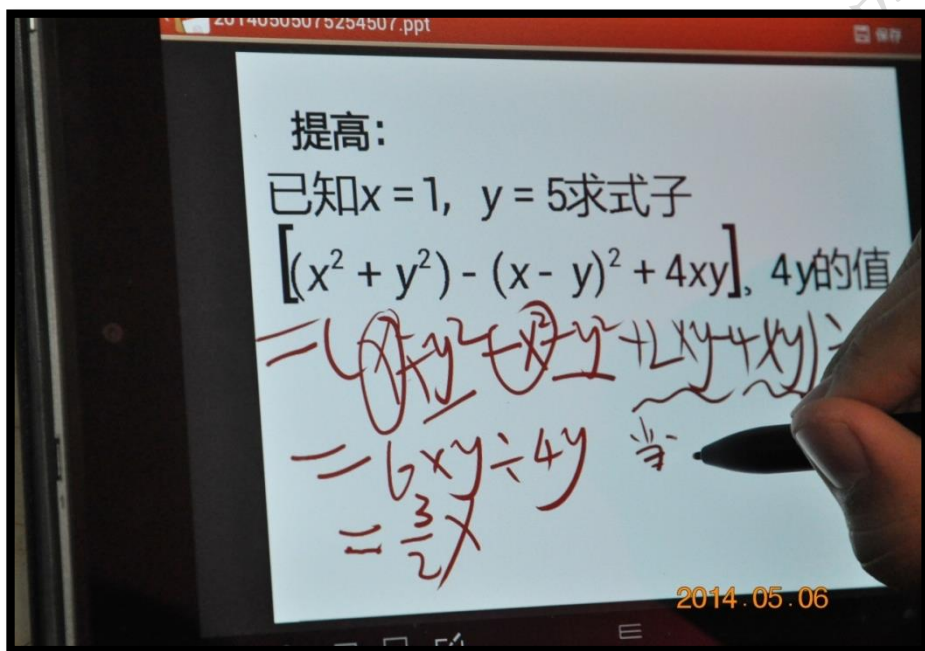 20140505075254507.ppt
保存
提高:
已知x = 1, y = 5求式子
[(x² + y²) - (x - y)² + 4xy], 4y的值
=(x²+y²-x²-y²+2xy+4xy)÷
=6xy÷4y 当
=3/2x
2014.05.06